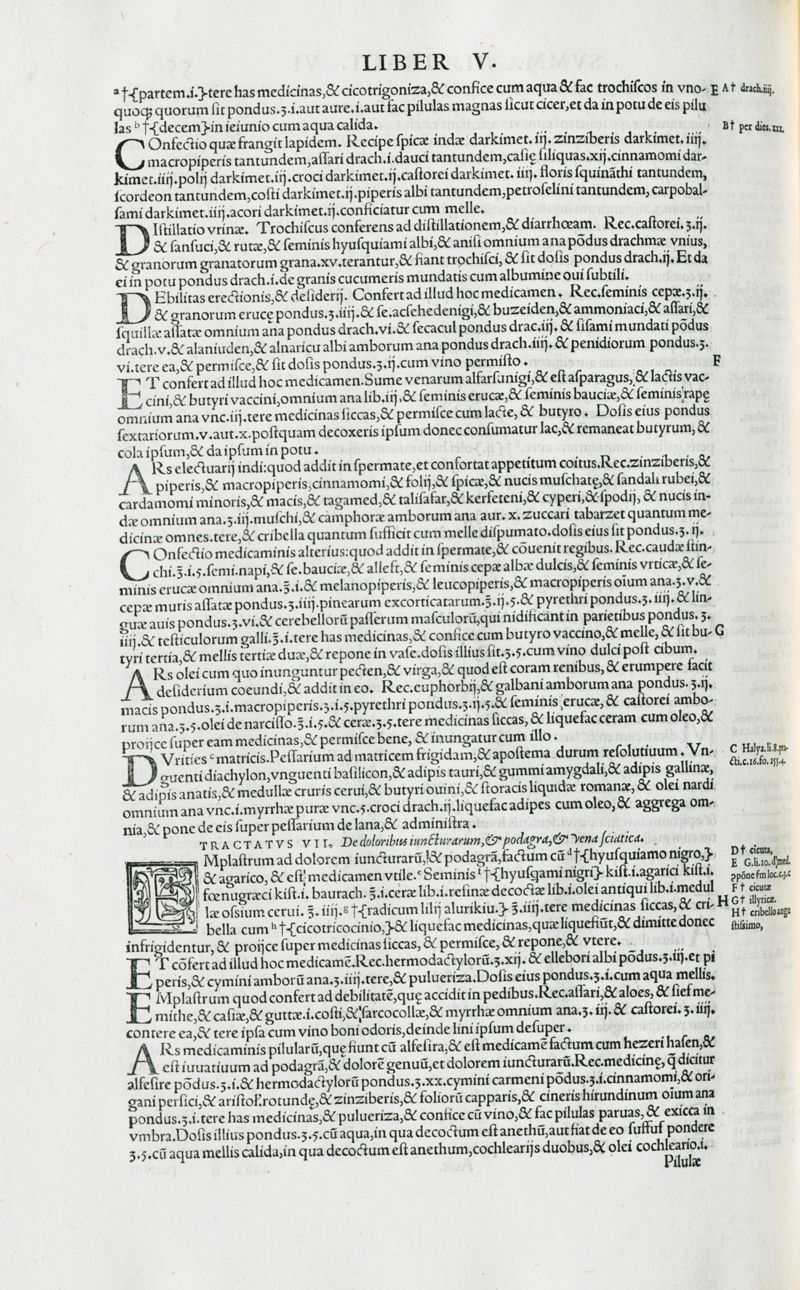 LIBER V.
ᵃ†{partem.i.}tere has medicinas,&cicotrigoniza,& confice cum aqua & fac trochiſcos in vno- E A† drach.iiij.
quoq; quorum ſit pondus.ʒ.i.aut aure.i.aut fac pilulas magnas ſicut cicer,et da in potu de eis pilu
las ᵇ†{decem}in ieiunio cum aqua calida. B† per dies.xxx.
COnfectio quæ frangit lapidem. Recipe ſpicæ indæ darkimet.iij.zinziberis darkimet.iiij.
macropiperis tantundem,aſſari drach.i.dauci tantundem,caſię ſiliquas.xij.cinnamomi dar-
kimet.iiij.polij darkimet.iij.croci darkimet.ij.caſtorei darkimet.iiij.floris ſquinãthi tantundem,
ſcordeon tantundem,coſti darkimet.ij.piperis albi tantundem,petroſelini tantundem,carpobal-
ſami darkimet.iiij.acori darkimet.ij.conficiatur cum melle.
DIſtillatio vrinæ. Trochiſcus conferens ad diſtillationem,& diarrhœam. Rec.caſtorei.ʒ.ij.
& ſanſuci,& rutæ,& ſeminis hyuſquiami albi,& aniſi omnium ana põdus drachmæ vnius,
& granorum granatorum grana.xv.terantur,& fiant trochiſci,& ſit doſis pondus drach.ij.Et da
ei in potu pondus drach.i.de granis cucumeris mundatis cum albumine oui ſubtili.
DEbilitas erectionis,& deſiderij. Confert ad illud hoc medicamen. Rec.ſeminis cepæ.ʒ.ij.
& granorum erucę pondus.ʒ.iiij.& ſe.acſehedenigi,& buzeiden,& ammoniaci,& aſſari,&
ſquillæ aſſatæ omnium ana pondus drach.vi.& ſecacul pondus drac.iij.& ſiſami mundati põdus
drach.v.& alaniuden,& alnaricu albi amborum ana pondus drach.iiij.& penidiorum pondus.ʒ.
vi.tere ea,& permiſce,& ſit doſis pondus.ʒ.ij.cum vino permiſto. F
ET confert ad illud hoc medicamen.Sume venarum alfarſunigi,& eſt aſparagus,& lactis vac-
cini,& butyri vaccini,omnium ana lib.iij,& ſeminis erucæ,& ſeminis bauciæ,& ſeminis rapę
omnium ana vnc.iij.tere medicinas ſiccas,& permiſce cum lacte, & butyro. Doſis eius pondus
ſextariorum.v.aut.x.poſtquam decoxeris ipſum donec conſumatur lac,& remaneat butyrum, &
cola ipſum,& da ipſum in potu.
ARs electuarij indi:quod addit in ſpermate,et confortat appetitum coitus.Rec.zinziberis,&
piperis,& macropiperis,cinnamomi,& folij,& ſpicæ,& nucis muſchatę,& ſandali rubei,&
cardamomi minoris,& macis,& tagamed,& taliſafar,& kerfeteni,& cyperi,& ſpodij, & nucis in-
dæ omnium ana.ʒ.iij.muſchi,& camphoræ amborum ana aur. x. zuccari tabarzet quantum me-
dicinæ omnes.tere,& cribella quantum ſufficit cum melle diſpumato.doſis eius ſit pondus.ʒ.ij.
COnfectio medicaminis alterius:quod addit in ſpermate,& cõuenit regibus. Rec.caudæ ſtin-
chi.℥.i.ƽ.ſemi.napi,& ſe.bauciæ,& alleft,& ſeminis cepæ albæ dulcis,& ſeminis vrticæ,& ſe-
minis erucæ omnium ana.℥.i.& melanopiperis,& leucopiperis,& macropiperis oium ana.ʒ.v.&
cepæ muris aſſatæ pondus.ʒ.iiij.pinearum excorticatarum.℥.ij.ƽ.& pyrethri pondus.ʒ.iiij.& lin-
guæ auis pondus.ʒ.vi.& cerebellorũ paſſerum maſculorũ,qui nidificant in parietibus pondus.ʒ.
iiij.& teſticulorum galli.℥.i.tere has medicinas,& confice cum butyro vaccino,& melle,& ſit bu- G
tyri tertia,& mellis tertiæ duæ,& repone in vaſe.doſis illius ſit.ʒ.ƽ.cum vino dulci poſt cibum.
ARs olei cum quo inunguntur pecten,& virga,& quod eſt coram renibus,& erumpere facit
deſiderium coeundi,& addit in eo. Rec.euphorbij,& galbani amborum ana pondus.ʒ.ij.
macis pondus.ʒ.i.macropiperis.ʒ.i.ƽ.pyrethri pondus.ʒ.ij.ƽ.& ſeminis erucæ,& caſtorei ambo-
rum ana.ʒ.ƽ.olei de narciſſo.℥.i.ƽ.& ceræ.ʒ.ƽ.tere medicinas ſiccas, & liquefac ceram cum oleo,&
proijce ſuper eam medicinas,& permiſce bene, & inungatur cum illo.
DVrities ᶜmatricis.Peſſarium ad matricem frigidam,& apoſtema durum reſolutiuum. Vn- C Halya.li.8.pra-
guenti diachylon,vnguenti baſilicon,& adipis tauri,& gummi amygdali,& adipis gallinæ, cti.c.16.fo.155.4.
& adipis anatis,& medullæ cruris cerui,& butyri ouini,& ſtoracis liquidæ romanæ,& olei nardi
omnium ana vnc.i.myrrhæ puræ vnc.ƽ.croci drach.ij.liquefac adipes cum oleo,& aggrega om-
nia,& pone de eis ſuper peſſarium de lana,& adminiſtra.
TRACTATVS VII. De doloribus iuncturarum,& podagra,& vena ſciatica.
EMplaſtrum ad dolorem iuncturarũ,& podagrã,factum cũ ᵈ†{hyuſquiamo nigro,} D† cicuta,
& agarico, & eſt medicamen vtile.ᵉSeminis ᶠ†{hyuſqami nigri}kiſt.i.agarici kiſt.i. E G.li.10.
fœnugræci kiſt.i. baurach. ℥.i.ceræ lib.i.reſinæ decoctæ lib.i.olei antiqui lib.i.medul F† cicutæ
læ oſsium cerui. ℥. iiij.ᵍ†{radicum lilij alurikiu.}℥.iiij.tere medicinas ſiccas,& cri- H G† illyricæ.
bella cum ʰ†{cicotricocinio,}& liquefac medicinas,quæ liquefiũt,& dimitte donec H† cribello angu
infrigidentur, & proijce ſuper medicinas ſiccas, & permiſce,& repone,& vtere. ſtiſsimo,
ET cõfert ad illud hoc medicamẽ.Rec.hermodactylorũ.ʒ.xij.& ellebori albi põdus.ʒ.iij.et pi
peris,& cymini amborũ ana.ʒ.iiij.tere,& pulueriza.Doſis eius pondus.ʒ.i.cum aqua mellis.
EMplaſtrum quod confert ad debilitatẽ,quę accidit in pedibus.Rec.aſſari,& aloes,& ſief me-
mithe,& caſiæ,& guttæ.i.coſti,& ſarcocollæ,& myrrhæ omnium ana.ʒ.iij.& caſtorei. ʒ.iiij.
contere ea,& tere ipſa cum vino boni odoris,deinde lini ipſum deſuper.
ARs medicaminis pilularũ,quę fiunt cũ alfeſira,& eſt medicamẽ factum cum hezeri haſen,&
eſt iuuatiuum ad podagrã,& dolorẽ genuũ,et dolorem iuncturarũ.Rec.medicinę, q̃ dicitur
alfeſire põdus.ʒ.i.& hermodactylorũ pondus.ʒ.xx.cymini carmeni põdus.ʒ.i.cinnamomi,& ori-
gani perſici,& ariſtol.rotundę,& zinziberis,& foliorũ capparis,& cineris hirundinum oium ana
pondus.ʒ.i.tere has medicinas,& pulueriza,& confice cũ vino,& fac pilulas paruas, & exicca in
vmbra.Doſis illius pondus.ʒ.ƽ.cũ aqua,in qua decoctum eſt anethũ,aut fiat de eo ſuffuf pondere
ʒ.ƽ.cũ aqua mellis calida,in qua decoctum eſt anethum,cochlearijs duobus,& olei cochleario.i.
Pilulæ